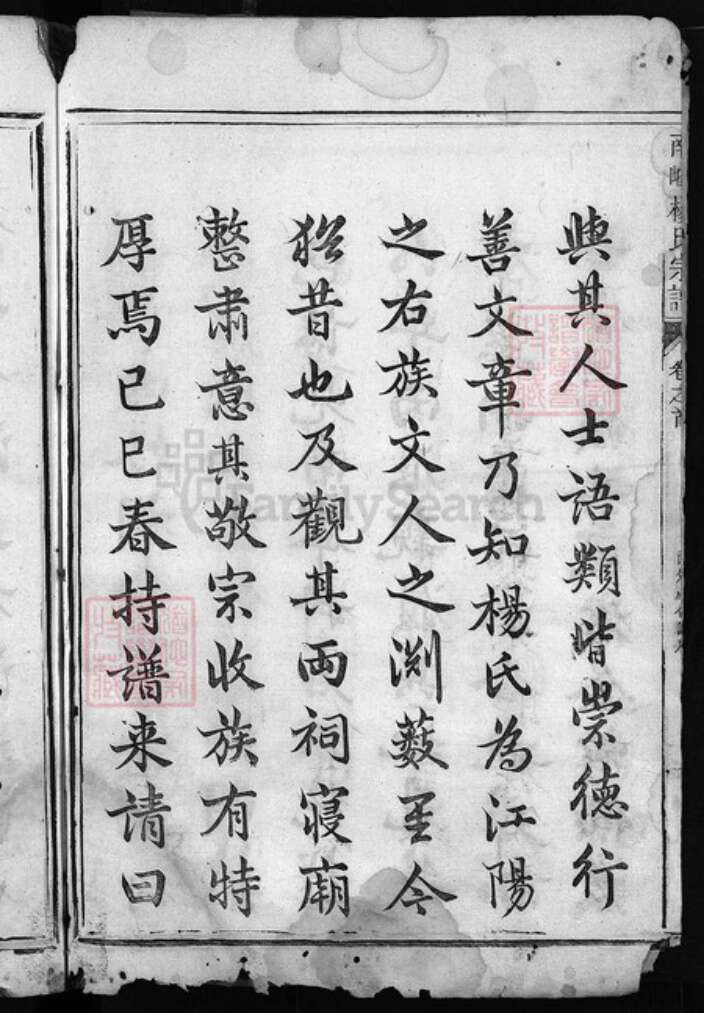 與其人士語類皆崇德行
善文章乃知楊氏為江陽
之右族文人之渊薮至今
猶昔也及觀其兩祠寢廟
整肅意其敬宗收族有特
厚焉己巳春持譜来請曰
楊氏宗譜 卷之首
FamilySearch